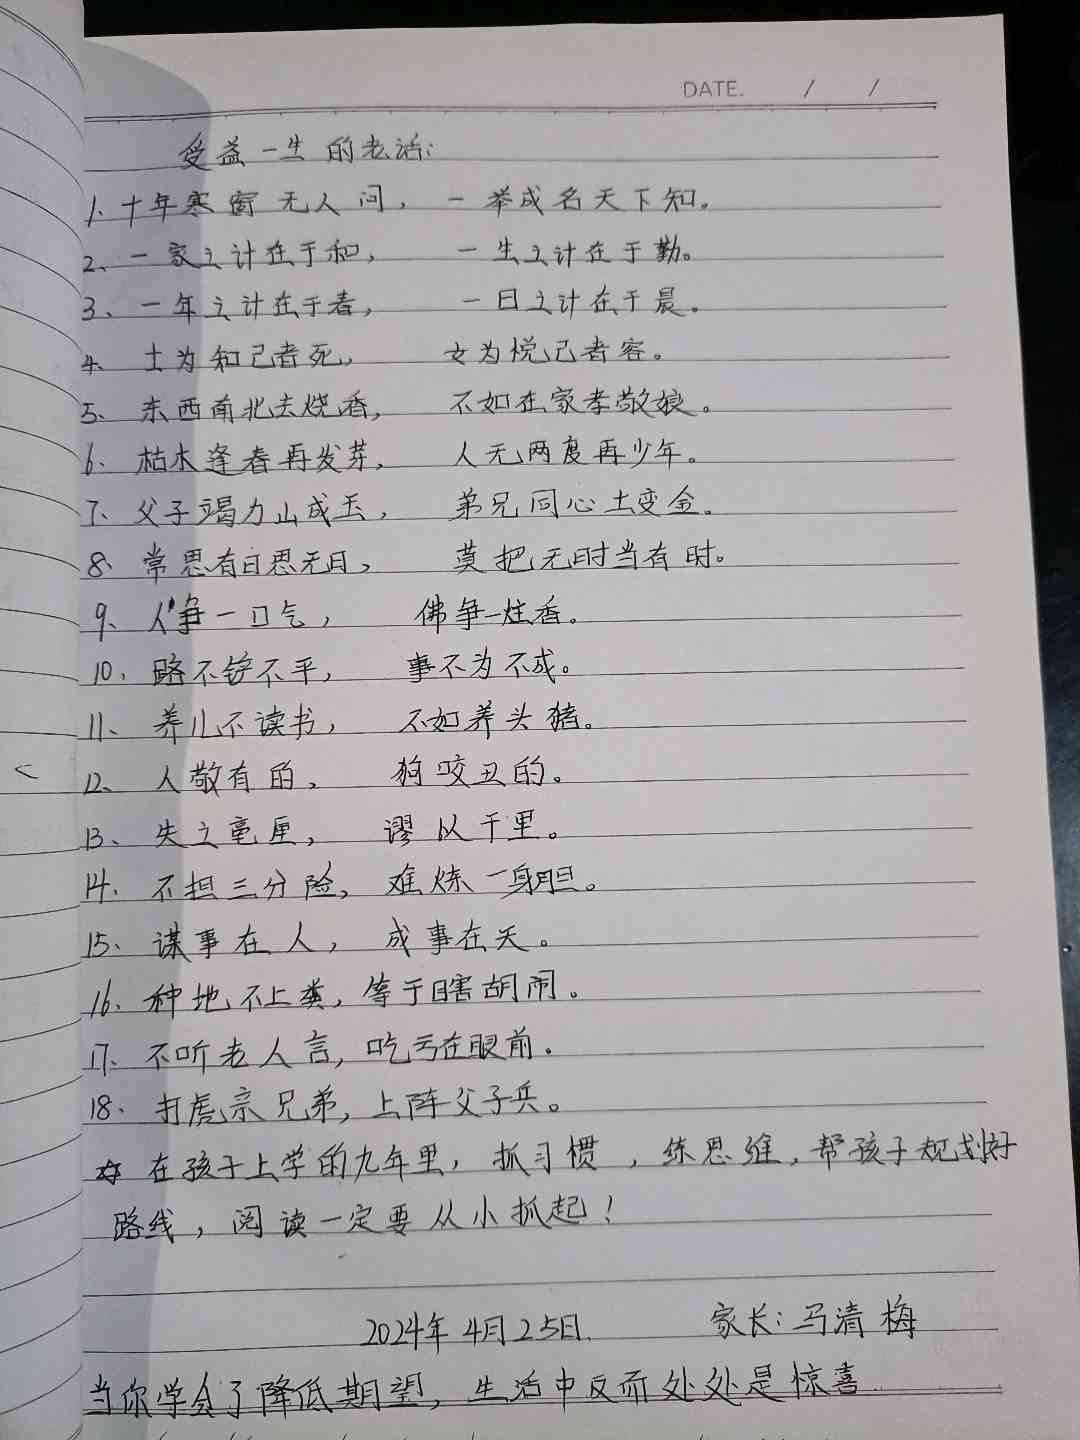 DATE. / /
受益一生的老话:
1、十年寒窗无人问, 一举成名天下知。
2、一家之计在于和, 一生之计在于勤。
3、一年之计在于春, 一日之计在于晨。
4、士为知己者死, 女为悦己者容。
5、东西南北去烧香, 不如在家孝敬娘。
6、枯木逢春再发芽, 人无两度再少年。
7、父子竭力山成玉, 弟兄同心土变金。
8、常思有日思无日, 莫把无时当有时。
9、人争一口气, 佛争一炷香。
10、路不铲不平, 事不为不成。
11、养儿不读书, 不如养头猪。
12、人敬有的, 狗咬丑的。
13、失之毫厘, 谬以千里。
14、不担三分险, 难炼一身胆。
15、谋事在人, 成事在天。
16、种地不上粪, 等于瞎胡闹。
17、不听老人言, 吃亏在眼前.
18、打虎亲兄弟, 上阵父子兵。
在孩子上学的九年里, 抓习惯, 练思维, 帮孩子规划好
路线, 阅读一定要从小抓起!
2024年4月25日. 家长:马清梅
当你学会了降低期望, 生活中反而处处是惊喜.